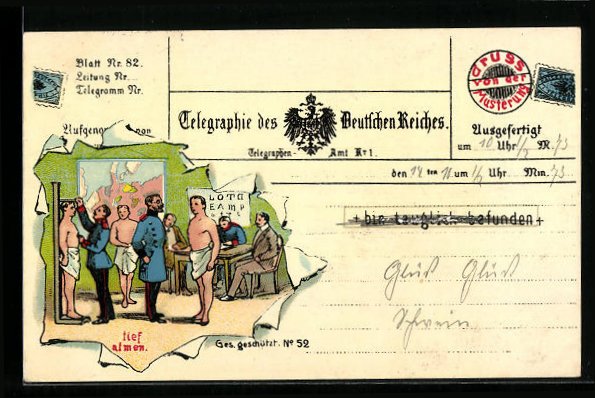 Blatt Nr. 82.
Leitung Nr.
Telegramm Nr.
Gruss
von der
Musterung
Telegraphie des Deutschen Reiches.
Telegraphen- Amt Nr 1.
Aufgenommen von
Ausgefertigt
um 10 Uhr 1/2 M. 73
den 14 ten 11 um 1/2 Uhr Min. 73
LOTD
EAMP
+ bin tauglich befunden +
Glück Glück
Schwein
tief
atmen.
Ges. geschützt. No 52